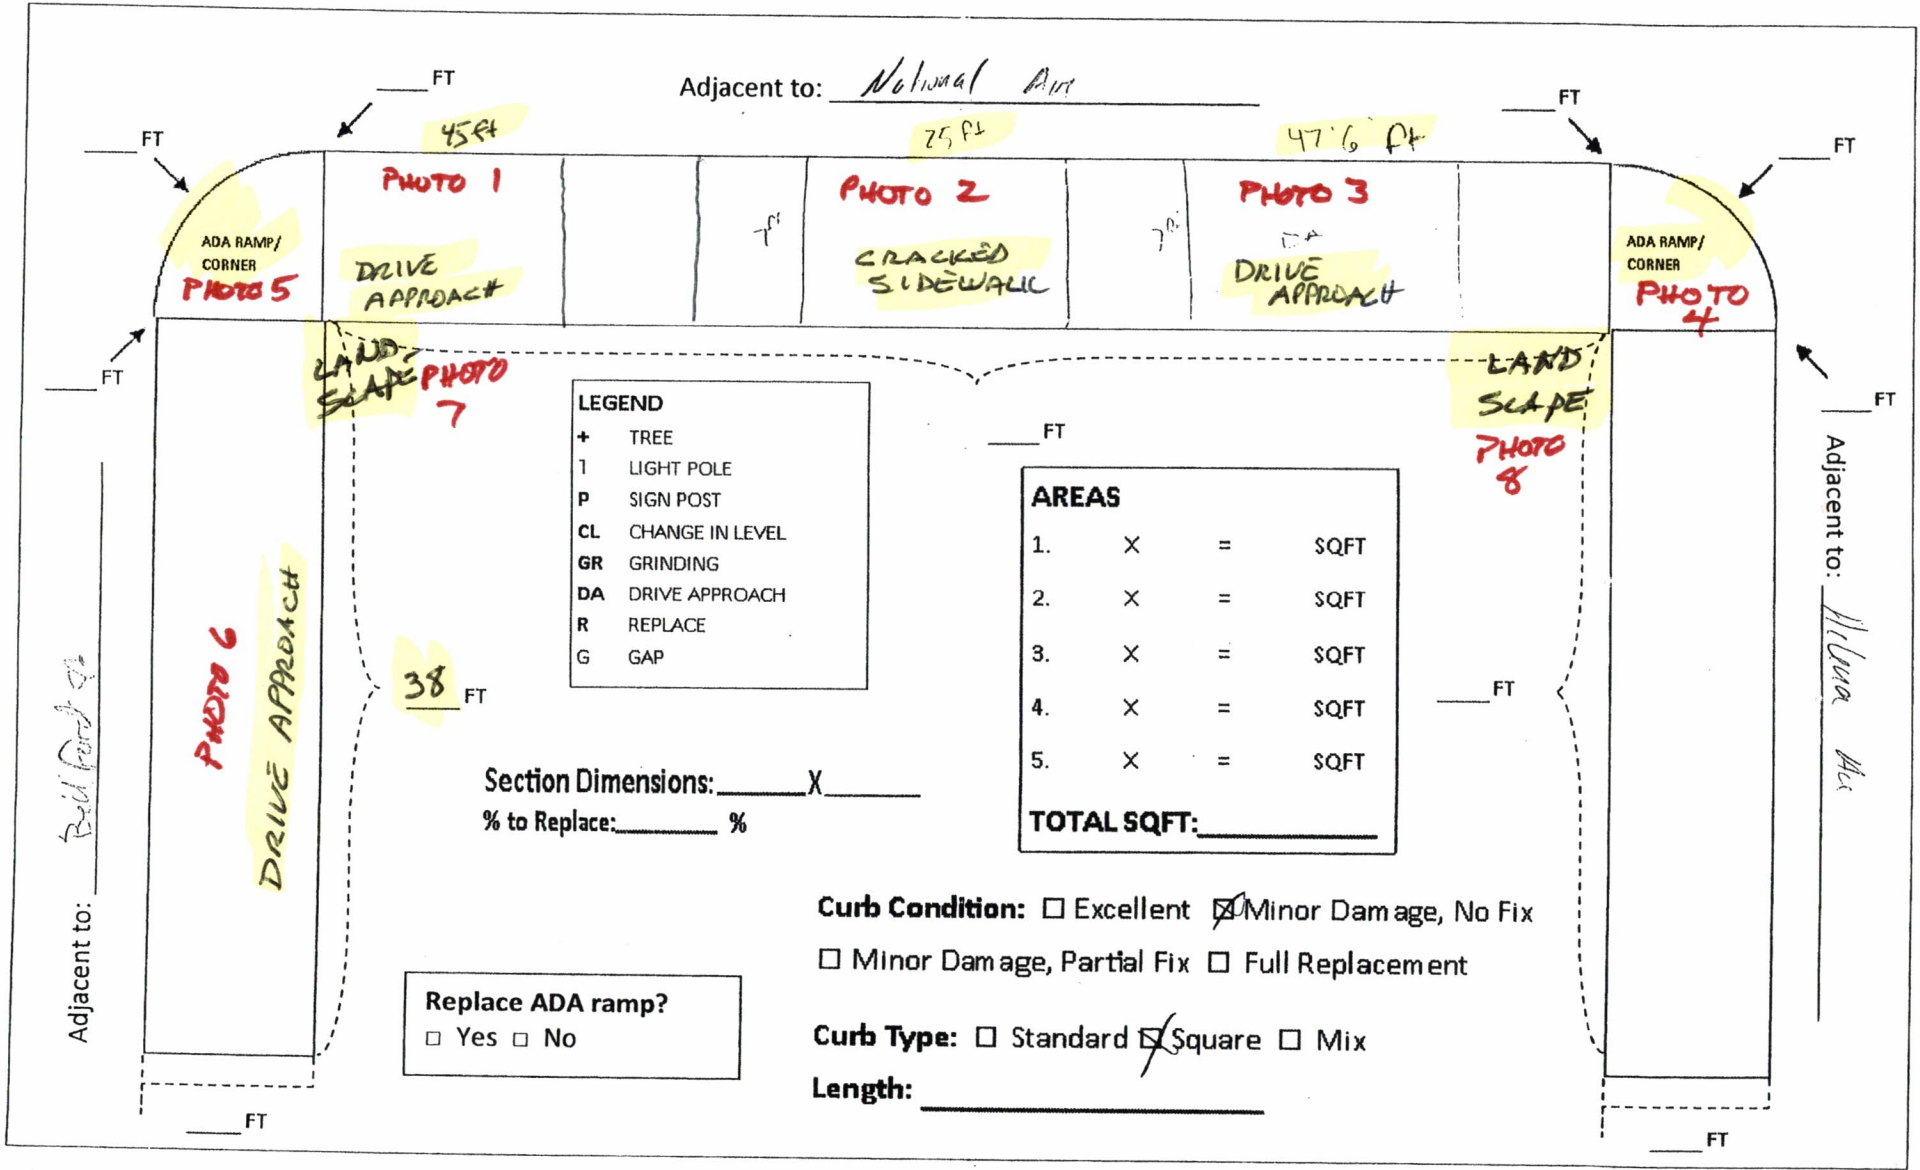 Adjacent to: National Ave
____ FT
____ FT
____ FT
____ FT
45ft
25 ft
47'6 ft
PHOTO 1
PHOTO 2
PHOTO 3
7ft
7ft
DA
ADA RAMP/
CORNER
PHOTO 5
DRIVE
APPROACH
CRACKED
SIDEWALK
DRIVE
APPROACH
ADA RAMP/
CORNER
PHOTO
4
____ FT
LAND-
SCAPE
PHOTO
7
LAND
SCAPE
PHOTO
8
____ FT
____ FT
LEGEND
+ TREE
1 LIGHT POLE
P SIGN POST
CL CHANGE IN LEVEL
GR GRINDING
DA DRIVE APPROACH
R REPLACE
G GAP
AREAS
1. X = SQFT
2. X = SQFT
3. X = SQFT
4. X = SQFT
5. X = SQFT
TOTAL SQFT:____
PHOTO 6
DRIVE APPROACH
38 FT
____ FT
Adjacent to:
Adjacent to:
Section Dimensions:____X____
% to Replace:____ %
Curb Condition: ☐ Excellent ☒ Minor Damage, No Fix
☐ Minor Damage, Partial Fix ☐ Full Replacement
Replace ADA ramp?
☐ Yes ☐ No
Curb Type: ☐ Standard ☒ Square ☐ Mix
Length: ____
____ FT
____ FT